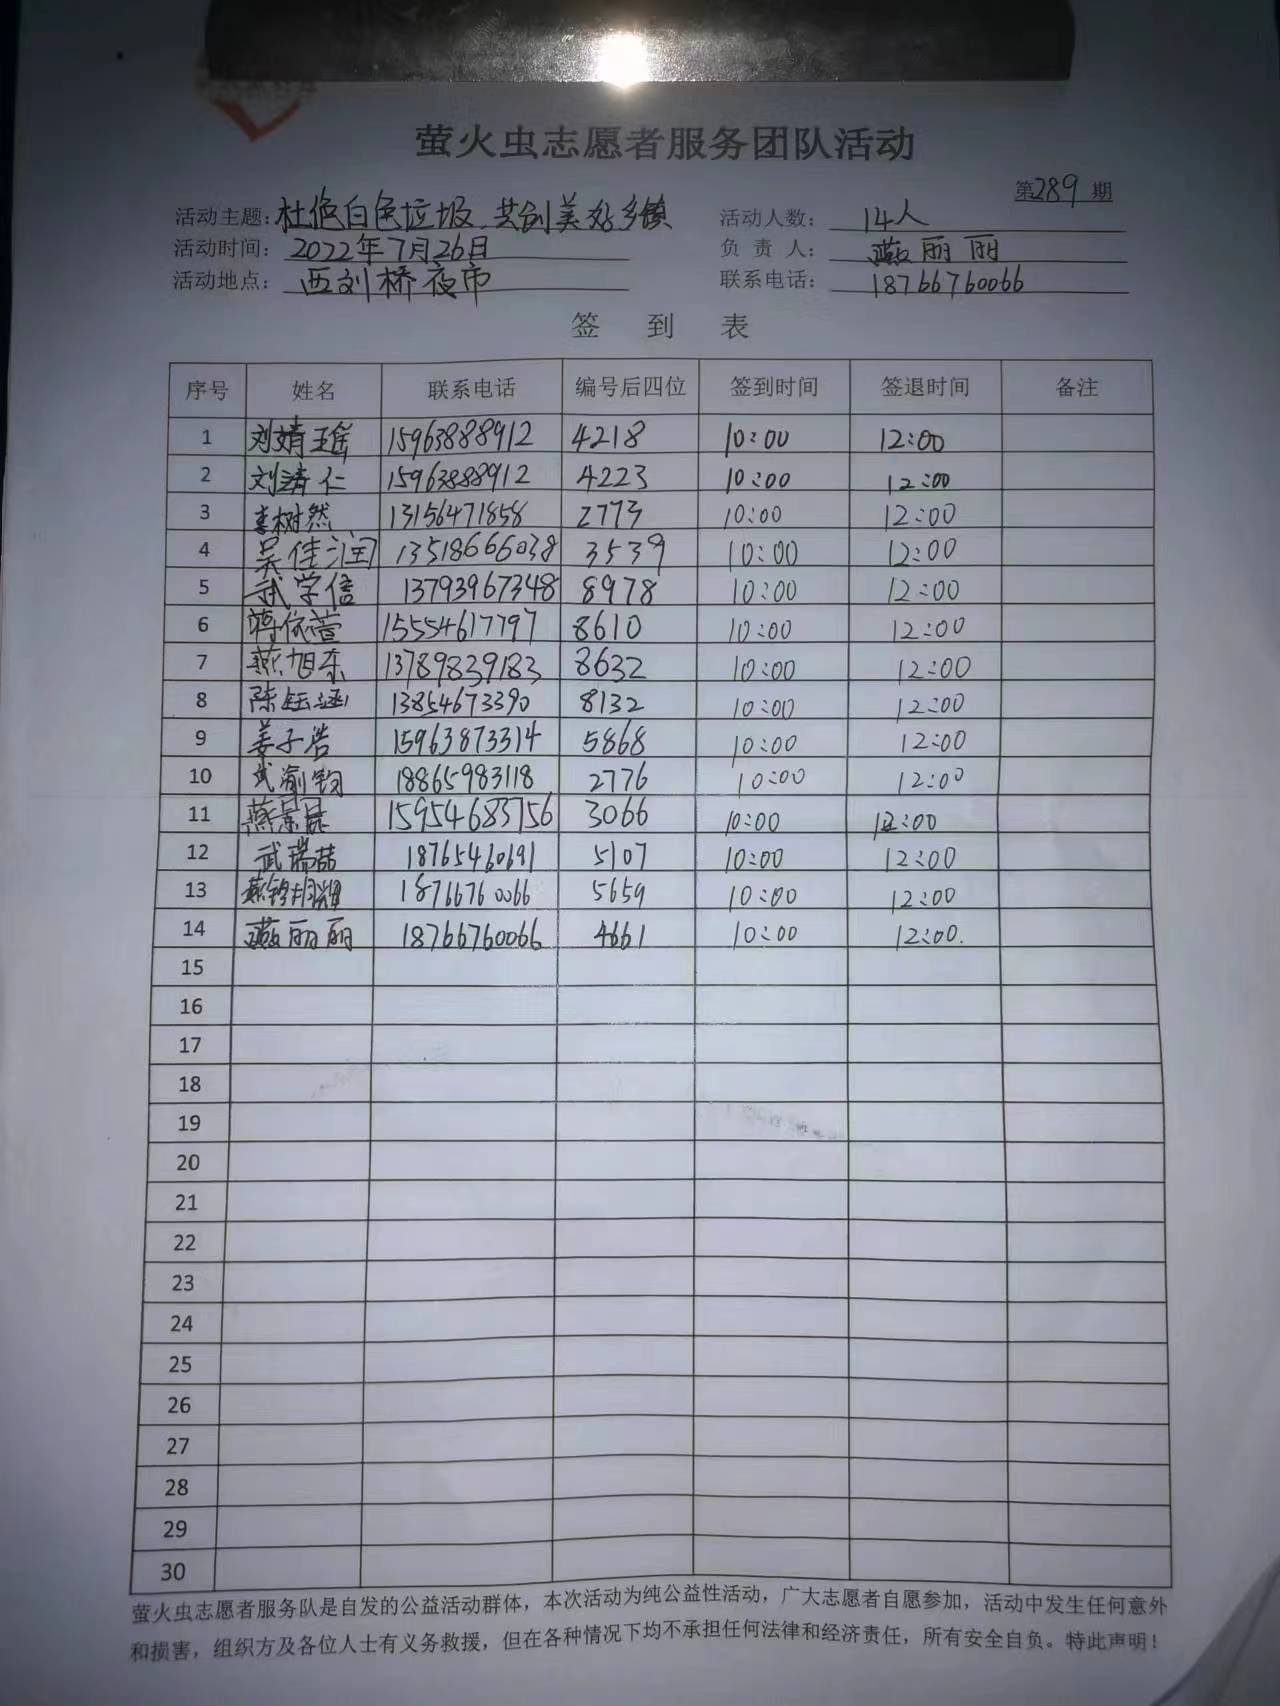 萤火虫志愿者服务团队活动
第289期
活动主题：杜绝白色垃圾、共创美好乡镇 活动人数：14人
活动时间：2022年7月26日 负责人：燕丽丽
活动地点：西刘桥夜市 联系电话：18766760066
签到表
序号 姓名 联系电话 编号后四位 签到时间 签退时间 备注
1 刘婧瑶 15963888912 4218 10:00 12:00
2 刘清仁 15963888912 4223 10:00 12:00
3 李树然 13156471858 2773 10:00 12:00
4 吴佳润 13518666038 3539 10:00 12:00
5 武学信 13793967348 8978 10:00 12:00
6 蒋依萱 15554617797 8610 10:00 12:00
7 燕旭东 13789839183 8632 10:00 12:00
8 陈钰涵 13854673390 8132 10:00 12:00
9 姜子浩 15963873314 5868 10:00 12:00
10 武渝钧 18865983118 2776 10:00 12:00
11 燕景 15954683756 3066 10:00 12:00
12 武瑞喆 18765460691 5107 10:00 12:00
13 燕 18766760066 5659 10:00 12:00
14 燕丽丽 18766760066 4661 10:00 12:00.
15
16
17
18
19
20
21
22
23
24
25
26
27
28
29
30
萤火虫志愿者服务队是自发的公益活动群体，本次活动为纯公益性活动，广大志愿者自愿参加，活动中发生任何意外
和损害，组织方及各位人士有义务救援，但在各种情况下均不承担任何法律和经济责任，所有安全自负。特此声明！